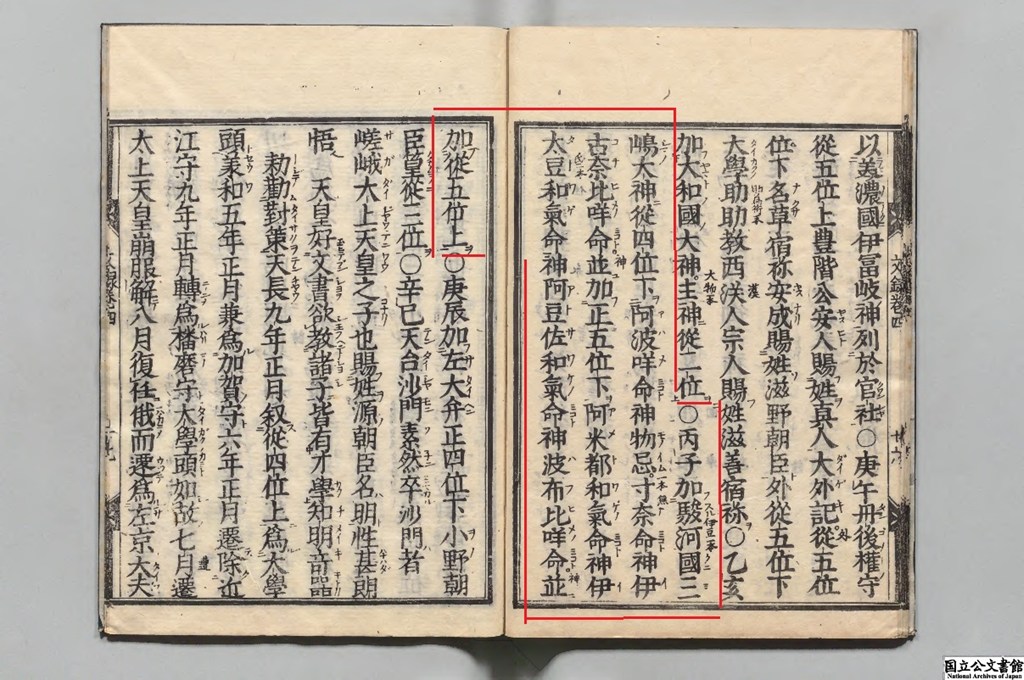 以美濃國伊冨岐神列於官社〇庚午丹後權守
從五位上豊階公安人賜姓真人大外記從五位
位下名草宿祢安成賜姓滋野朝臣外從五位下
大學助助教西漢人宗人賜姓滋善宿祢〇乙亥
加大和國大神大物主神從二位〇丙子加駿河國三
嶋大神從四位下阿波咩命神物忌寸奈命神伊
古奈比咩命並加正五位下阿米都和氣命神伊
太豆和氣命神阿豆佐和氣命神波布比咩命並
文録卷四
廿六
加從五位上〇庚辰加左大弁正四位下小野朝
臣篁從三位〇辛己天台沙門素然卒沙門者
嵯峨太上天皇之子也賜姓源朝臣名明性甚朗
悟 天皇好文書欲教諸子皆有才學知明竒噐
勅勸對策天長九年正月叙從四位上爲大學
頭兼和五年正月兼爲加賀守六年正月遷除近
江守九年正月轉爲播磨守大學頭如故七月遷
太上天皇崩服解八月復任俄而遷爲左京大夫
国立公文書館
National Archives of Japan